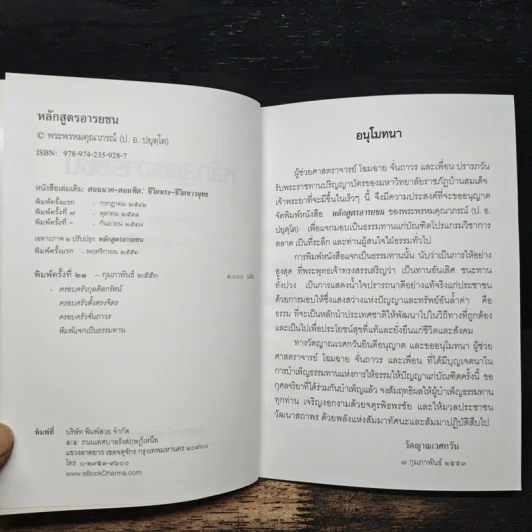 หลักสูตรอารยชน
© พระพรหมคุณาภรณ์ (ป. อ. ปยุตฺโต)
ISBN: 978-974-235-928-7
หนังสือเล่มเดิม: สอนนาค-สอนทิด: ชีวิตพระ-ชีวิตชาวพุทธ
พิมพ์ครั้งแรก - กรกฎาคม ๒๕๔๒
พิมพ์ครั้งที่ ๗ ตุลาคม ๒๕๔๘
พิมพ์ครั้งที่ - กันยายน
เฉพาะภาค ๒ ปรับปรุง: หลักสูตรอารยชน
พิมพ์ครั้งแรก - พฤศจิกายน ๒๕๕๐
พิมพ์ครั้งที่ ๒๑ - กุมภาพันธ์ ๒๕๕๓ ๑,๐๐๐ เล่ม
- ครอบครัวกุลดิลกรัตน์
ครอบครัวตั้งตรงจิตร
ครอบครัวจั่นถาวร
พิมพ์แจกเป็นธรรมทาน
พิมพ์ที่ บริษัท พิมพ์สวย จำกัด
๕/๕ ถนนเทศบาลรังสฤษฏ์เหนือ
แขวงลาดยาว เขตจตุจักร กรุงเทพมหานคร ๑๐๙๐๐
โทร. ๐-๒๙๕๓-๙๖๐๐
www.eBookDharma.com
อนุโมทนา
ผู้ช่วยศาสตราจารย์ โฉมฉาย จั่นถาวร และเพื่อน ปรารภวัน
รับพระราชทานปริญญาบัตรของมหาวิทยาลัยราชภัฏบ้านสมเด็จ
เจ้าพระยาที่จะมีขึ้นในเร็วๆ นี้ จึงมีความประสงค์ที่จะขออนุญาต
จัดพิมพ์หนังสือ หลักสูตรอารยชน ของพระพรหมคุณาภรณ์ (ป. อ.
ปยุตฺโต) เพื่อแจกมอบเป็นธรรมทานแก่บัณฑิตโปรแกรมวิชาการ
ตลาด เป็นที่ระลึก และท่านผู้สนใจใฝ่ธรรมทั่วไป
การพิมพ์หนังสือธรรมแจกเป็นธรรมทานนั้น นับว่าเป็นการให้อย่าง
สูงสุด ที่พระพุทธเจ้าทรงสรรเสริญว่า เป็นทานอันเลิศ ชนะทาน
ทั้งปวง เป็นการแสดงน้ำใจปรารถนาดีอย่างแท้จริงแก่ประชาชน
ด้วยการมอบให้ซึ่งแสงสว่างแห่งปัญญาและทรัพย์อันล้ำค่า คือ
ธรรม ที่จะเป็นหลักนำประเทศชาติให้พัฒนาไปในวิถีทางที่ถูกต้อง
และเป็นไปเพื่อประโยชน์สุขที่แท้และยั่งยืนแก่ชีวิตและสังคม
ทางวัดญาณเวศกวันยินดีอนุญาต และขออนุโมทนา ผู้ช่วย
ศาสตราจารย์ โฉมฉาย จั่นถาวร และเพื่อน ที่ได้มีบุญเจตนาใน
การบำเพ็ญธรรมทานแห่งการให้ธรรมให้ปัญญาแก่บัณฑิตครั้งนี้ ขอ
กุศลจริยาที่ได้ร่วมกันบำเพ็ญแล้ว จงสัมฤทธิผลให้ผู้บำเพ็ญธรรมทาน
ทุกท่าน เจริญงอกงามด้วยจตุรพิธพรชัย และให้มวลประชาชน
วัฒนาสถาพร ด้วยพลังแห่งสัมมาทัศนะและสัมมาปฏิบัติสืบไป
วัดญาณเวศกวัน
๘ กุมภาพันธ์ ๒๕๕๓